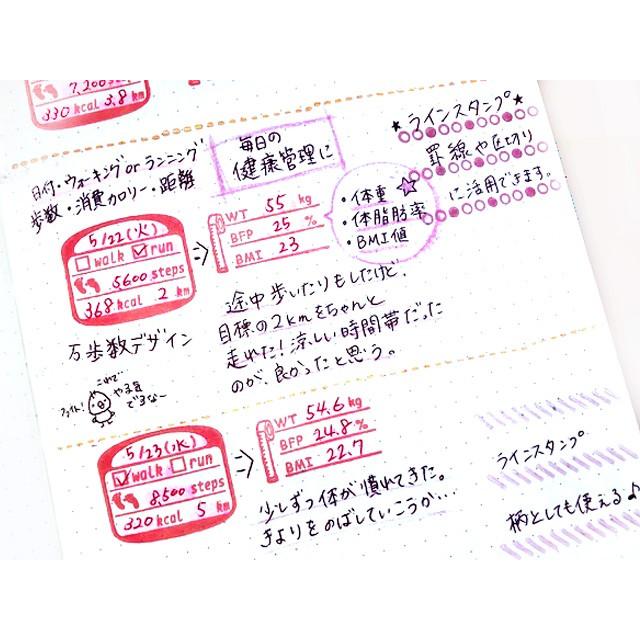 7,200 steps
330 kcal 3.8 km
★ラインスタンプ★
罫線や区切り
に活用できます。
毎日の
健康管理に
日付・ウォーキング or ランニング
歩数・消費カロリー・距離
5/22(火)
walk run
5600 steps
368 kcal 2 km
WT 55 kg
BFP 25 %
BMI 23
・体重
・体脂肪率
・BMI値
万歩数デザイン
途中歩いたりもしたけど、
目標の2kmをちゃんと
走れた!涼しい時間帯だった
のが、良かったと思う。
ファイト!
これで
やる気
でるなー
5/23(水)
walk run
8,500 steps
320 kcal 5 km
WT 54.6 kg
BFP 24.8 %
BMI 22.7
少しずつ体が慣れてきた。
きょりをのばしていこうか…
ラインスタンプ
柄としても使える♪